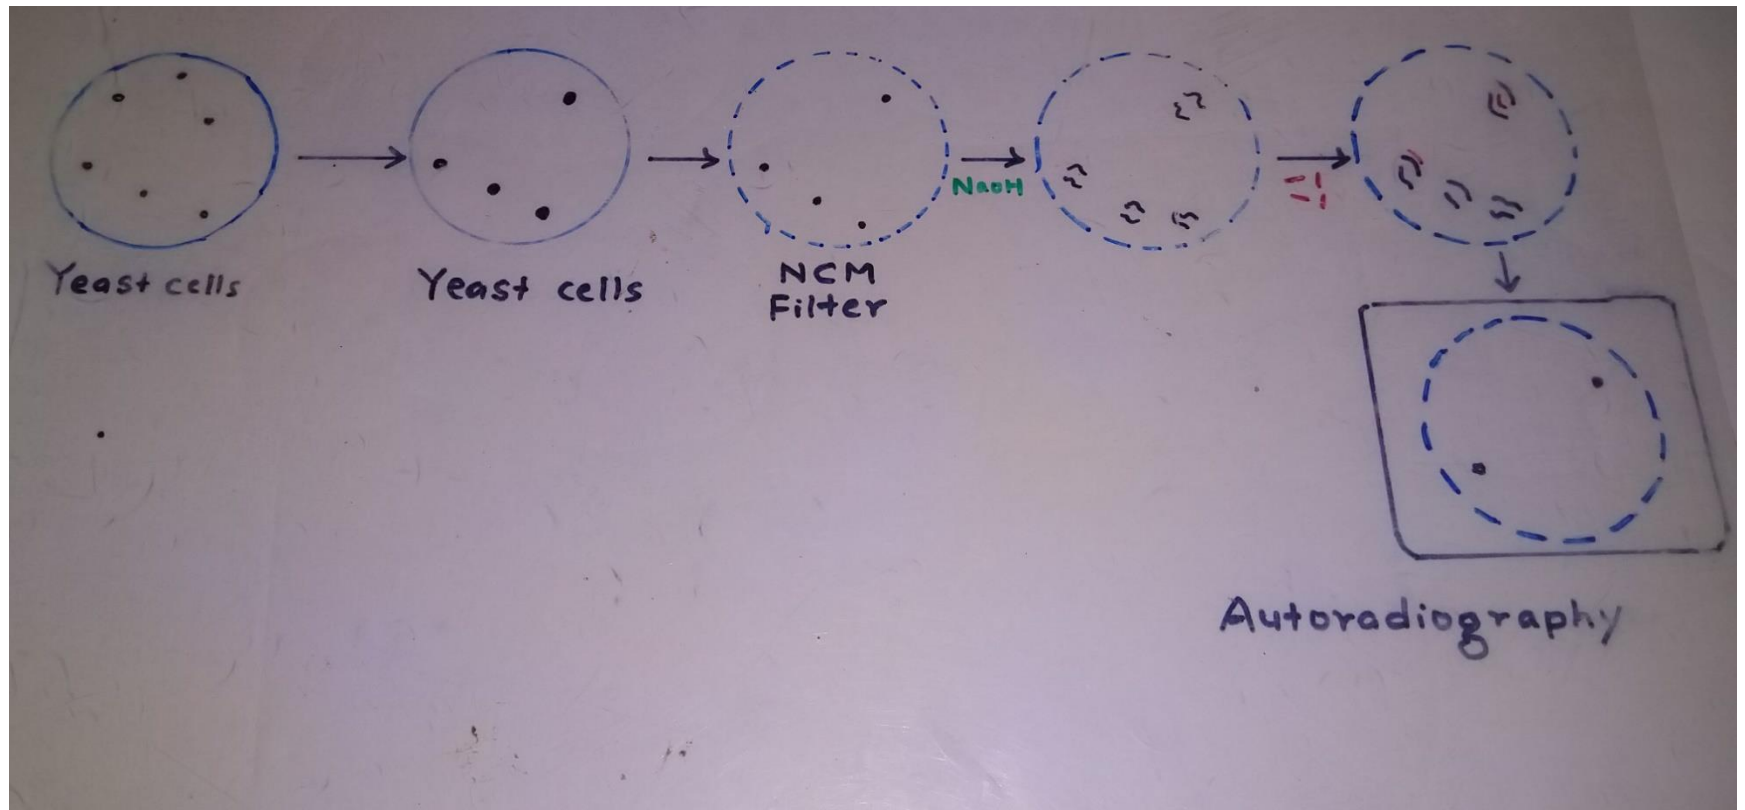 Yeast cells
Yeast cells
NCM
Filter
NaOH
Autoradiography